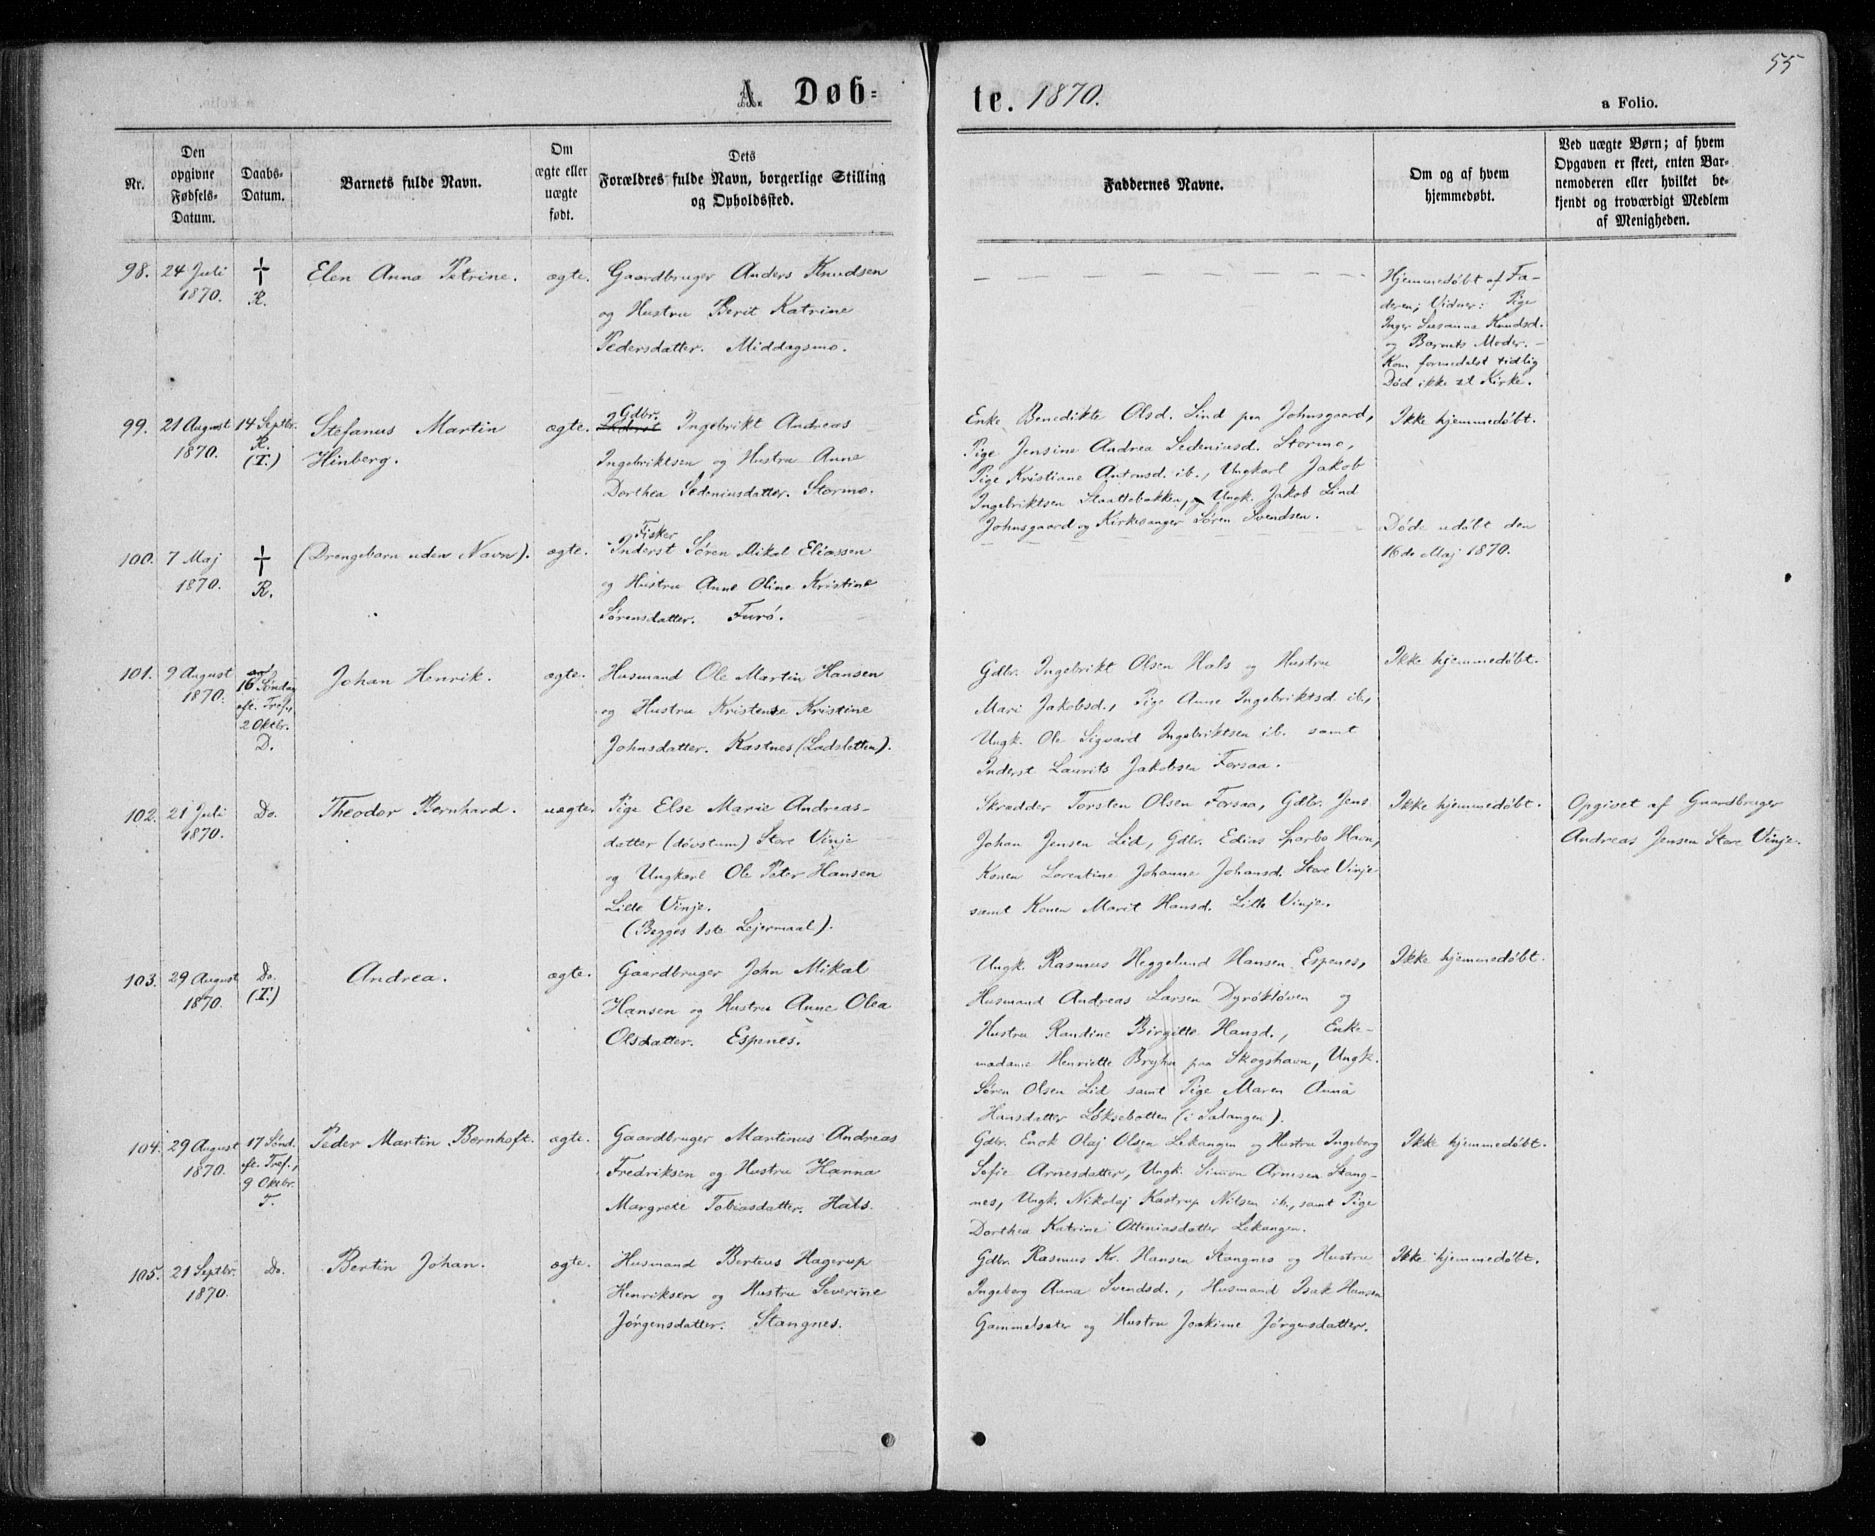 55
A. Døb-
te. 1870.
a Folio.
Nr.
Den
opgivne
Fødsels-
Datum.
Daabs-
Datum.
Barnets fulde Navn.
Om
ægte eller
uægte
født.
Dets
Forældres fulde Navn, borgerlige Stilling
og Opholdssted.
Faddernes Navne.
Om og af hvem
hjemmedøbt.
Ved uægte Børn; af hvem
Opgaven er skeet, enten Bar-
nemoderen eller hvilket be-
kjendt og troværdigt Medlem
af Menigheden.
98.
24 Juli
1870.
†
R.
Elen Anna Petrine.
ægte.
Gaardbruger Anders Knudsen
og Hustru Berit Katrine
Pedersdatter. Middagsmo.
Hjemmedøbt af Fa-
deren; Vidner: Pige
Inger Susanna Knudsd.
og Barnets Moder. –
Kom formedelst tidlig
Død ikke til Kirke.
99.
21 August
1870.
14 Septbr.
R.
(T.)
Stefanus Martin
Hinberg.
ægte.
Gdbr.
Inderst Ingebrikt Andreas
Ingebriktsen og Hustru Anne
Dorthea Sedeniusdatter. Stormo.
Enke Benedikte Olsd. Lind paa Johnsgaard,
Pige Jensine Andrea Sedeniusd. Stormo,
Pige Kristiane Antonsd. ib., Ungkarl Jakob
Ingebriktsen Slaattebakken, Ungk. Jakob Lind
Johnsgaard og Kirkesanger Søren Svendsen.
Ikke hjemmedøbt.
100.
7 Maj
1870.
†
R.
(Drengebarn uden Navn).
ægte.
Fisker
Inderst Søren Mikal Eliassen
og Hustru Anne Oline Kristine
Sørensdatter. Furø.
Døde udøbt den
16de Maj 1870.
101.
9 August
1870.
16 Søndag
eft. Tref.,
2 Oktbr.
D.
Johan Henrik.
ægte.
Husmand Ole Martin Hansen
og Hustru Kristense Kristine
Johnsdatter. Kastnes (Ladsletten).
Gdbr. Ingebrikt Olsen Hals og Hustru
Mari Jakobsd., Pige Anne Ingebriktsd ib.,
Ungk. Ole Sigvard Ingebriktsen ib. samt
Inderst Laurits Jakobsen Forsaa.
Ikke hjemmedøbt.
102.
21 Juli
1870.
Do.
Theodor Bernhard.
uægte.
Pige Else Marie Andreas-
datter (døvstum) Store Vinje
og Ungkarl Ole Peter Hansen
Lille Vinje.
(Begges 1ste Lejermaal).
Skrædder Torsten Olsen Forsaa, Gdbr. Jens
Johan Jensen Lid, Gdbr. Edias Sparbo Havn,
Konen Lorentine Johanna Johansd. Store Vinje
samt Konen Marit Hansd. Lille Vinje.
Ikke hjemmedøbt.
Opgivet af Gaardbruger
Andreas Jensen Store Vinje.
103.
29 August
1870.
Do.
(T.)
Andrea.
ægte.
Gaardbruger John Mikal
Hansen og Hustru Anne Olea
Olsdatter. Espenes.
Ungk. Rasmus Heggelund Hansen Espenes,
Husmand Andreas Larsen Dyrökløven og
Hustru Randine Birgitte Hansd., Enke-
madame Henriette Bryhn paa Skogshavn, Ungk.
Søren Olsen Lid samt Pige Maren Anna
Hansdatter Løksebotten (i Salangen).
Ikke hjemmedøbt.
104.
29 August
1870.
17 Sønd.
eft. Tref.,
9 Oktbr.
T.
Peder Martin Bernhoft.
ægte.
Gaardbruger Martinus Andreas
Fredriksen og Hustru Hanna
Margrete Tobiasdatter. Hals.
Gdbr. Enok Olaj Olsen Lekangen og Hustru Ingeborg
Sofie Arnesdatter, Ungk. Simon Arnesen Stang-
nes, Ungk. Nikolaj Kastrup Nilsen ib., samt Pige
Dorthea Katrine Otteniasdatter Lekangen.
Ikke hjemmedøbt.
105.
21 Septbr.
1870.
Do.
Bertin Johan.
ægte.
Husmand Berteus Hagerup
Henriksen og Hustru Severine
Jørgensdatter. Stangnes.
Gdbr. Rasmus Kr. Hansen Stangnes og Hustru
Ingeborg Anna Svendsd., Husmand Isak Hansen
Gammelsæter og Hustru Joakime Jørgensdatter.
Ikke hjemmedøbt.